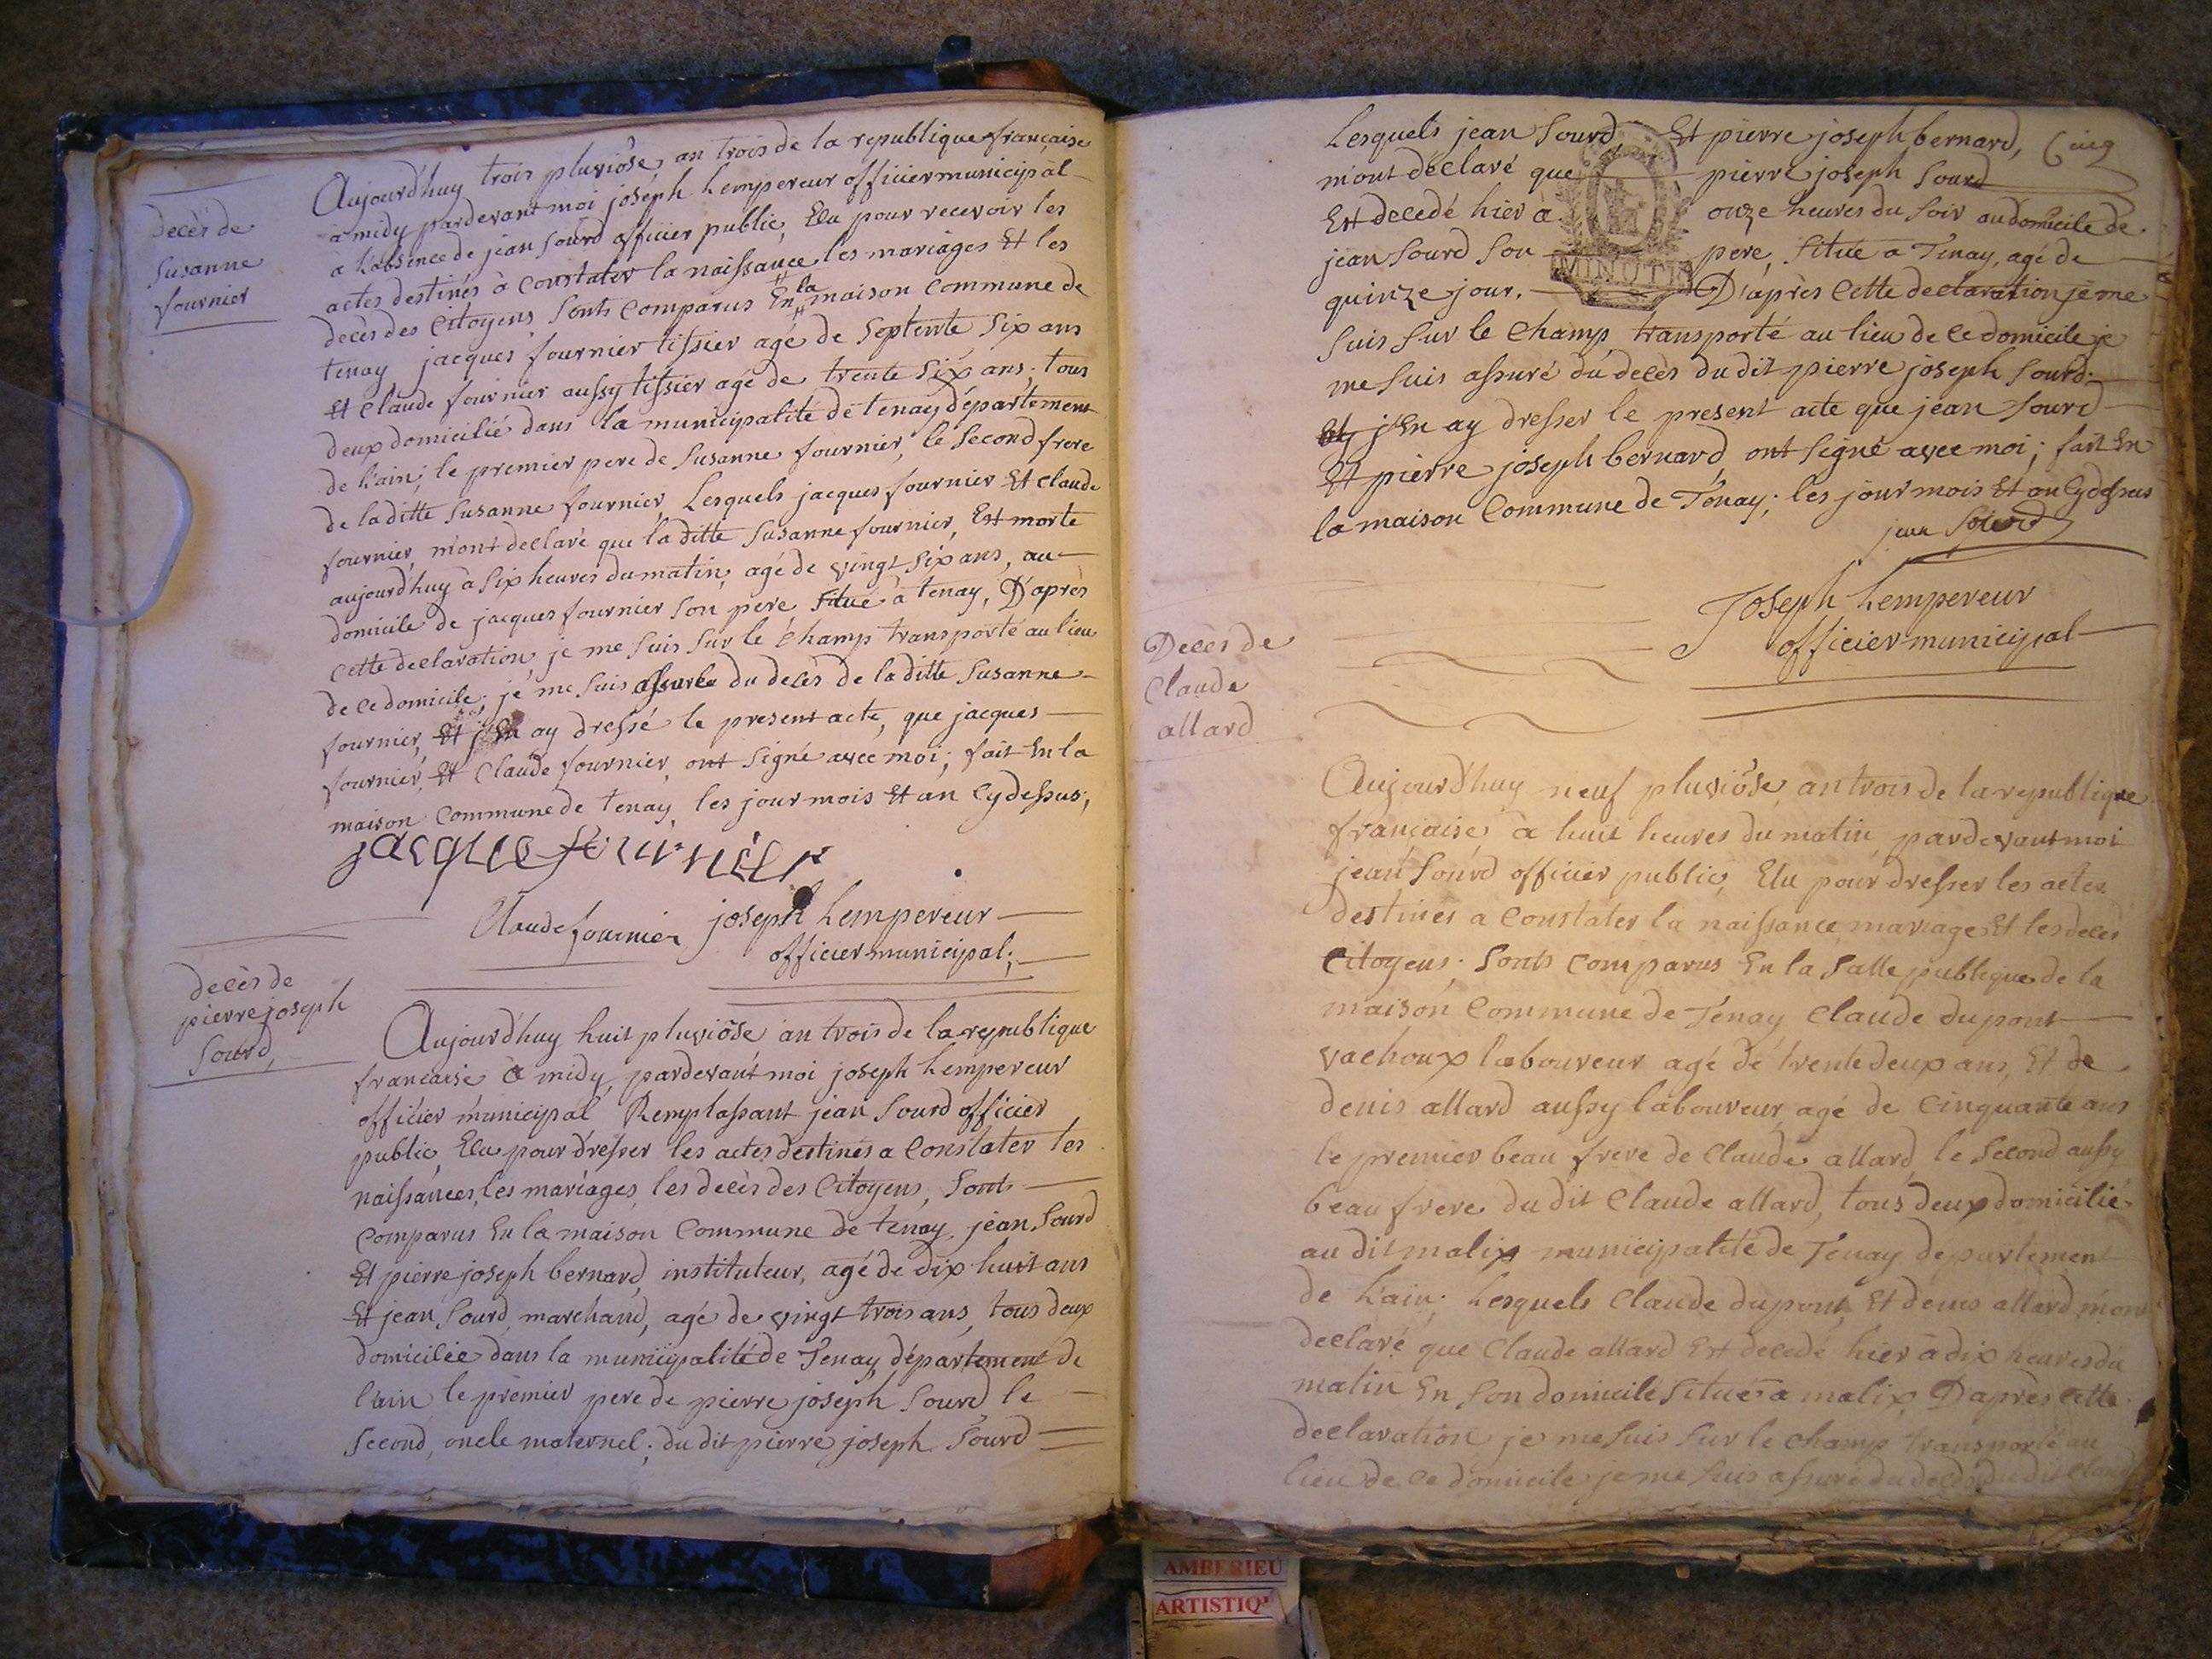 decès de
Susanne
fournier
Aujourd'huy trois pluviôse, an trois de la republique française
à midy pardevant moi joseph Lempereur officier municipal
a L'absence de jean Sourd officier public, Elu pour recevoir les
actes destinés à Constater la naissance les mariages Et les
decès des Citoyens Sonts Comparus En la maison Commune de
tenay jacques fournier tissier agé de Septente Six ans
Et Claude fournier aussy tissier agé de trente Six ans; tous
deux domicilié dans la municipalité de tenay département
de L'ain; le premier pere de Susanne fournier, le Second frere
de laditte Susanne fournier, Lesquels jacques fournier Et Claude
fournier, m'ont declaré que laditte Susanne fournier, Est morte
aujourd'huy à Six heures du matin, agé de vingt Six ans, au
domicile de jacques fournier Son pere Situé à tenay, D'après
Cette declaration, je me Suis Sur le Champ transporté au lieu
de Ce domicile; je me Suis assurée du decès de laditte Susanne
fournier, Et j'En ay dressé le present acte, que jacques
fournier, Et Claude fournier, ont Signé avec moi; fait En la
maison Commune de tenay, les jour mois Et an Cy dessus;
jacque fournier
Claude fournier joseph Lempereur
officier municipal;
decès de
pierre joseph
Sourd,
Aujourd'huy huit pluviôse an trois de la republique
francaise à midy, pardevant moi joseph Lempereur
officier municipal Remplassant jean Sourd officier
public, Elu pour dresser les actes destinés a Constater les
naissances, les mariages, les decès des Citoyens, Sonts
Comparus En la maison Commune de tenay, jean Sourd
Et pierre joseph bernard, instituteur, agé de dix huit ans
Et jean Sourd, marchand, agé de vingt trois ans, tous deux
domiciliée dans la municipalité de Tenay, département de
l'ain le premier pere de pierre joseph Sourd, le
Second, oncle maternel; du dit pierre joseph Sourd
Lesquels jean Sourd, Et pierre joseph bernard, Cinq
m'ont déclaré que pierre joseph Sourd
Est decedé hier à onze heures du Soir au domicile de
jean Sourd Son pere, Situé a Tenay, agé de
MINUTE
quinze jour. D'après Cette declaration je me
Suis Sur le Champ, transporté au lieu de Ce domicile je
me Suis assuré du decès du dit pierre joseph Sourd
j'En ay dresser le present acte que jean Sourd
Et pierre joseph bernard, ont Signé avec moi; fait En
la maison Commune de Tenay; les jour mois Et an Cy dessus
jean Sourd
Joseph Lempereur
officier municipal
Decès de
Claude
allard
Aujourd'huy neuf pluviôse, an trois de la republique
française, à huit heures du matin, pardevant moi
jean Sourd officier public, Elu pour dresser les actes
destinés a Constater la naissance, mariage, Et les decès
Citoyens. Sonts Comparus En la Salle publique de la
maison Commune de Tenay Claude dupont
vachoux laboureur agé de trente deux ans, Et de
denis allard aussy laboureur, agé de Cinquante ans
le premier beau frere de Claude allard, le Second aussy
beau frere du dit Claude allard, tous deux domicilié
au dit malix municipalité de Tenay departement
de L'ain. Lesquels Claude dupont, Et denis allard, m'ont
declaré que Claude allard Est decedé hier à dix heures du
matin En Son domicile Situé a malix, D'après Cette
declaration je me Suis Sur le Champ transporté au
lieu de Ce domicile je me Suis assuré du decès du dit
AMBERIEU
ARTISTIQ'